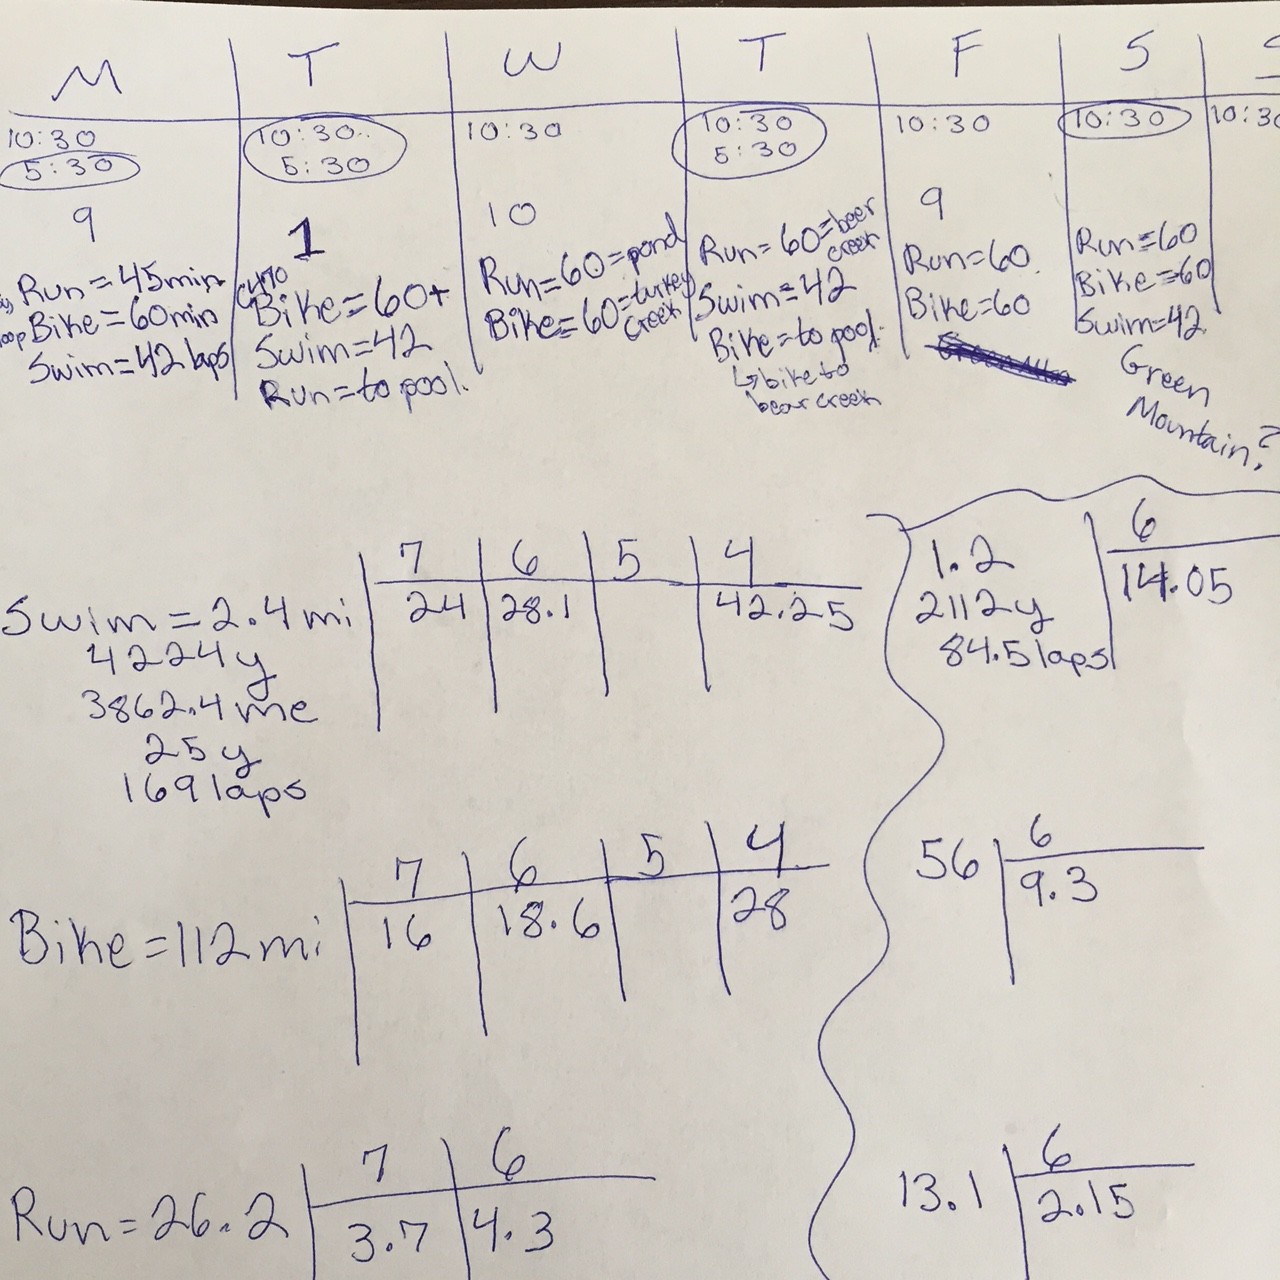 M T W T F S S
10:30
5:30
9
Run = 45min
loop Bike = 60min
Swim = 42 laps
10:30
5:30
1
C470
Bike = 60+
Swim = 42
Run = to pool.
10:30
10
Run = 60 = pond
Bike = 60 = turkey
creek
10:30
5:30
Run = 60 = bear
creek
Swim = 42
Bike = to pool.
↳ bike to
bear creek
10:30
9
Run = 60
Bike = 60
10:30
Run = 60
Bike = 60
Swim = 42
Green
Mountain?
10:30
7 6 5 4
Swim = 2.4 mi 24 28.1 42.25
4224y
3862.4 me
25 y
169 laps
6
1.2 14.05
2112y
84.5 laps
7 6 5 4
Bike = 112 mi 16 18.6 28
6
56 9.3
7 6
Run = 26.2 3.7 4.3
6
13.1 2.15